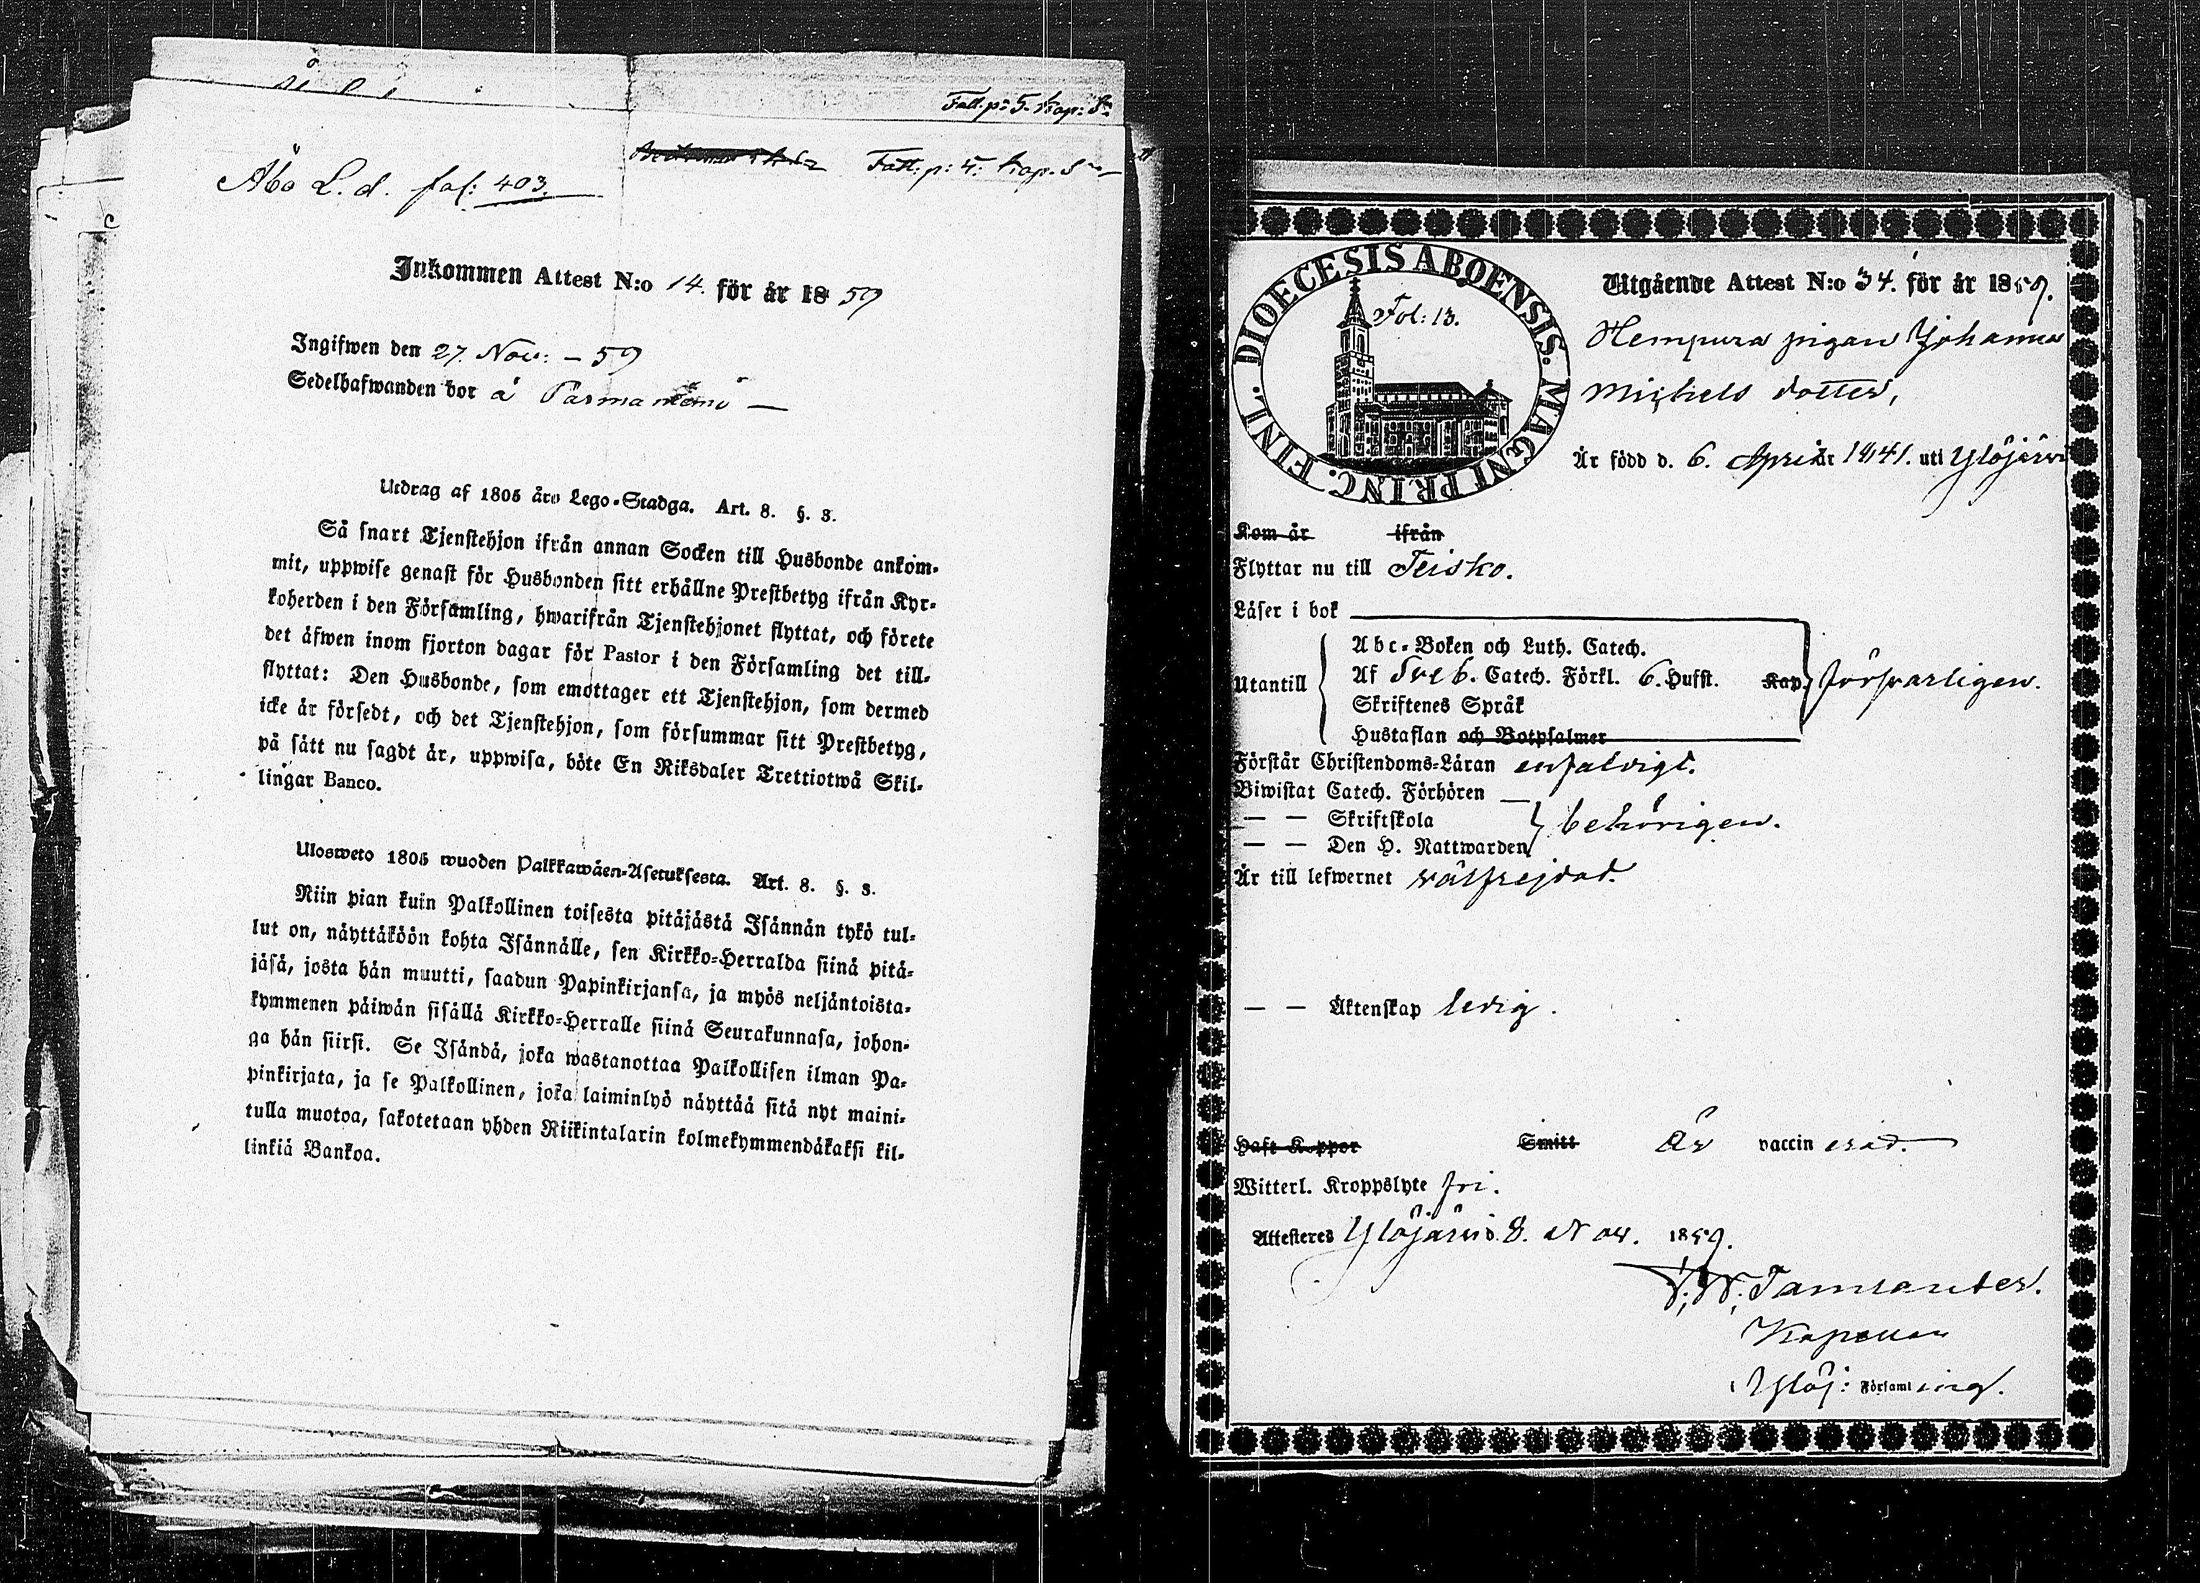 Fatt. p: 5. Kap: S:n
Åbo L. d. fol: 403.
Fatt. p: 4. Kap. S:n
Inkommen Attest N:o 14. för år 1859
Ingifwen den 27. Nov: - 59
Sedelhafwanden bor å
Utdrag af 1805 års Lego-Stadga. Art. 8. §. 3.
Så snart Tjenstehjon ifrån annan Socken till Husbonde ankom-
mit, uppwise genast för Husbonden sitt erhållne Prestbetyg ifrån Kyr-
koherden i den Församling, hwarifrån Tjenstehjonet flyttat, och förete
det äfwen inom fjorton dagar för Pastor i den Församling det till-
flyttat: Den Husbonde, som emottager ett Tjenstehjon, som dermed
icke är försedt, och det Tjenstehjon, som försummar sitt Prestbetyg,
på sätt nu sagdt är, uppwisa, böte En Riksdaler Trettiotwå Skil-
lingar Banco.
Ulosweto 1805 wuoden Palkkawäen-Asetuksesta. Art. 8. §. 3.
Niin pian kuin Palkollinen toisesta pitäjästä Isännän tykö tul-
lut on, näyttäköön kohta Isännälle, sen Kirkko-Herralda siinä pitä-
jäsä, josta hän muutti, saadun Papinkirjansa, ja myös neljäntoista-
kymmenen päiwän sisällä Kirkko-Herralle siinä Seurakunnasa, johon-
ga hän siirsi. Se Isändä, joka wastanottaa Palkollisen ilman Pa-
pinkirjata, ja se Palkollinen, joka laiminlyö näyttää sitä nyt maini-
tulla muotoa, sakotetaan yhden Riikintalarin kolmekymmendäkaksi kil-
linkiä Bankoa.
DIOECESIS ABOENSIS. MAGNI PRINC. FINL.
Fol: 13.
Utgående Attest N:o 34. för år 1859.
Hempura pigan Johanna
Michels dotter,
Är född d. 6. April år 1841. uti Ylöjärvi
Kom år ifrån
Flyttar nu till Teisko.
Läser i bok
Utantill
Abc-Boken och Luth. Catech.
Af Sveb. Catech. Förkl. 6. Hufst. Kap.
Skriftenes Språk
Hustaflan och Botpsalmer
försvarligen.
Förstår Christendoms-Läran enfaldigt.
Biwistat Catech. Förhören
— — Skriftskola
— — Den H. Nattwarden
behörigen.
Är till lefwernet välfrejdad.
— — Äktenskap ledig.
Haft Koppor Smitt Är vaccinerad.
Witterl. Kroppslyte fri.
Attesteres Ylöjärvi d. 8. Nov. 1859.
Kapellan
Ylöj: Församling.